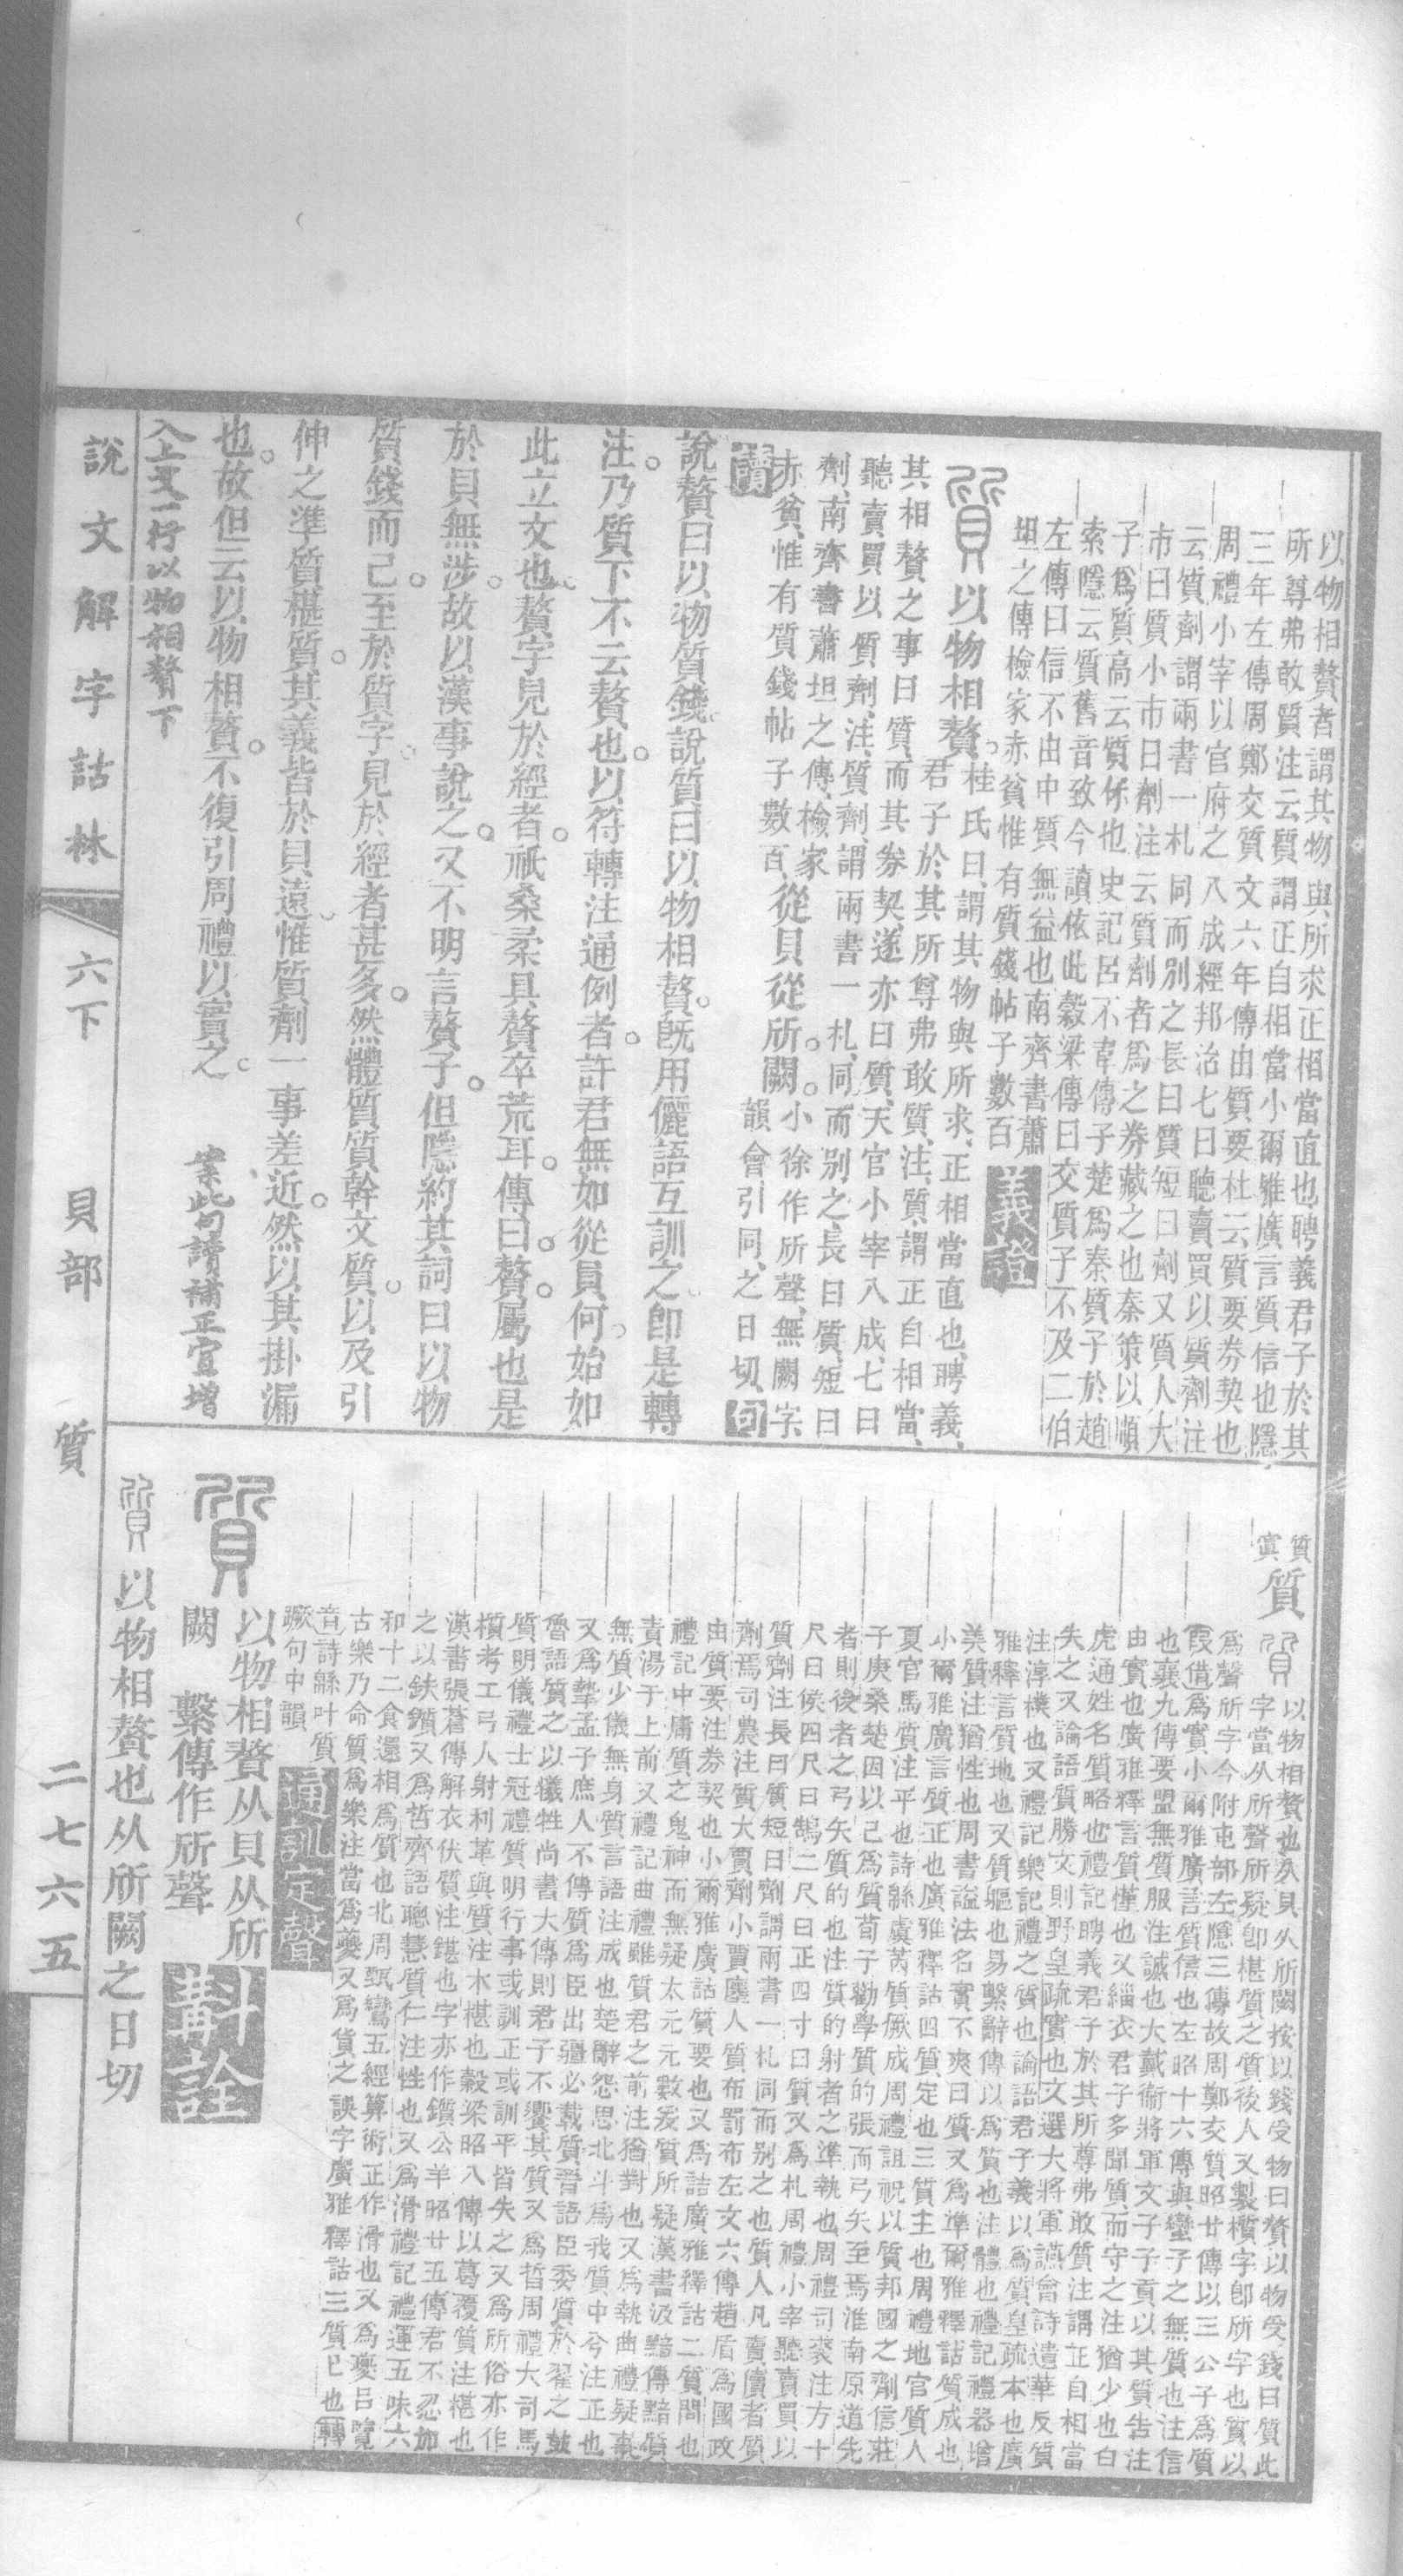 以物相贅者謂其物與所求正相當直也聘義君子於其
所尊弗敢質注云質謂正自相當小爾雅廣言質信也隱
三年左傳周鄭交質文六年傳由質要杜云質要券契也
周禮小宰以官府之八成經邦治七曰聽賣買以質劑注
云質劑謂兩書一札同而別之長曰質短曰劑又質人大
市曰質小市曰劑注云質劑者為之券藏之也秦策以順
子為質高云質係也史記呂不韋傳子楚為秦質子於趙
索隱云質舊音致今讀依此穀梁傳曰交質子不及二伯
左傳曰信不由中質無益也南齊書蕭
坦之傳檢家赤貧惟有質錢帖子數百 義證
質 以物相贅。桂氏曰、謂其物與所求、正相當直也、聘義、
君子於其所尊弗敢質、注、質、謂正自相當、
其相贅之事曰質、而其券契、遂亦曰質、天官小宰八成、七曰
聽賣買以質劑、注、質劑、謂兩書一札、同而別之、長曰質、短曰
劑、南齊書蕭坦之傳、檢家
赤貧、惟有質錢帖子數百、從貝從所。闕。小徐作所聲、無闕字
韻會引同、之日切、句
讀
說贅曰以物質錢。說質曰以物相贅。既用儷語互訓之即是轉
注。乃質下不云贅也。以符轉注通例者。許君無如從貝何。始如
此立文也。贅字見於經者。祇桑柔具贅卒荒耳。傳曰。贅。屬也是
於貝無涉。故以漢事說之。又不明言贅子。但隱約其詞曰以物
質錢而已。至於質字。見於經者甚多。然體質質幹文質。以及引
伸之準質椹質。其義皆於貝遠。惟質劑一事差近。然以其掛漏
也。故但云以物相贅。不復引周禮以實之。 案此句讀補正宜增
入上文一行以物相贅下
說文解字詁林 六下 貝部 質 二七六五
質 質
實
質 以物相贅也从貝从所闕按以錢受物曰贅以物受錢曰質此
字當从所聲所疑卽椹質之質後人又製櫍字卽所字也質以
為聲所字今附屯部左隱三傳故周鄭交質昭廿傳以三公子為質
叚借為實小爾雅廣言質信也左昭十六傳與蠻子之無質也注信
也襄九傳要盟無質服注誠也大戴衞將軍文子子貢以其質告注
由實也廣雅釋言質愨也又緇衣君子多聞質而守之注猶少也白
虎通姓名質略也禮記聘義君子於其所尊弗敢質注謂正自相當
失之又論語質勝文則野皇疏實也文選大將軍讌會詩遺華反質
注淳樸也又禮記樂記禮之質也論語君子義以為質皇疏本也廣
雅釋言質地也又質軀也易繫辭傳以為質也注體也禮記禮器增
美質注猶性也周書謚法名實不爽曰質又為準爾雅釋詁質成也
小爾雅廣言質正也廣雅釋詁四質定也三質主也周禮地官質人
夏官馬質注平也詩緜虞芮質厥成周禮詛祝以質邦國之劑信莊
子庚桑楚因以己為質荀子勸學質的張而弓矢至焉淮南原道先
者則後者之弓矢質的也注質的射者之準執也周禮司裘注方十
尺曰侯四尺曰鵠二尺曰正四寸曰質又為札周禮小宰聽賣買以
質劑注長曰質短曰劑謂兩書一札同而別之也質人凡賣儥者質
劑焉司農注質大賈劑小賈廛人質布罰布左文六傳趙盾為國政
由質要注券契也小爾雅廣詁質要也又為詰廣雅釋詁二質問也
禮記中庸質之鬼神而無疑太元元數爰質所疑漢書汲黯傳黯質
責湯于上前又禮記曲禮雖質君之前注猶對也又為執曲禮疑事
無質少儀無身質言語注成也楚辭怨思北斗為我質中兮注正也
又為摯孟子庶人不傳質為臣出疆必載質晉語臣委質於翟之鼓
魯語質之以犧牲尚書大傳則君子不饗其質又為晢周禮大司馬
質明儀禮士冠禮質明行事或訓正或訓平皆失之又為所俗亦作
櫍考工弓人射利革與質注木椹也穀梁昭八傳以葛覆質注椹也
漢書張蒼傳解衣伏質注鍖也字亦作鑕公羊昭廿五傳君不忍加
之以鈇鑕又為哲齊語聰慧質仁注性也又為滑禮記禮運五味六
和十二食還相為質也北周甄鸞五經算術正作滑也又為夔呂覽
古樂乃命質為樂注當為夔又為貨之誤字廣雅釋詁三質巳也轉
音詩緜叶質
蹶句中韻 通訓定聲
質 以物相贅从貝从所
闕 繫傳作所聲 斠詮
質 以物相贅也从所闕之日切